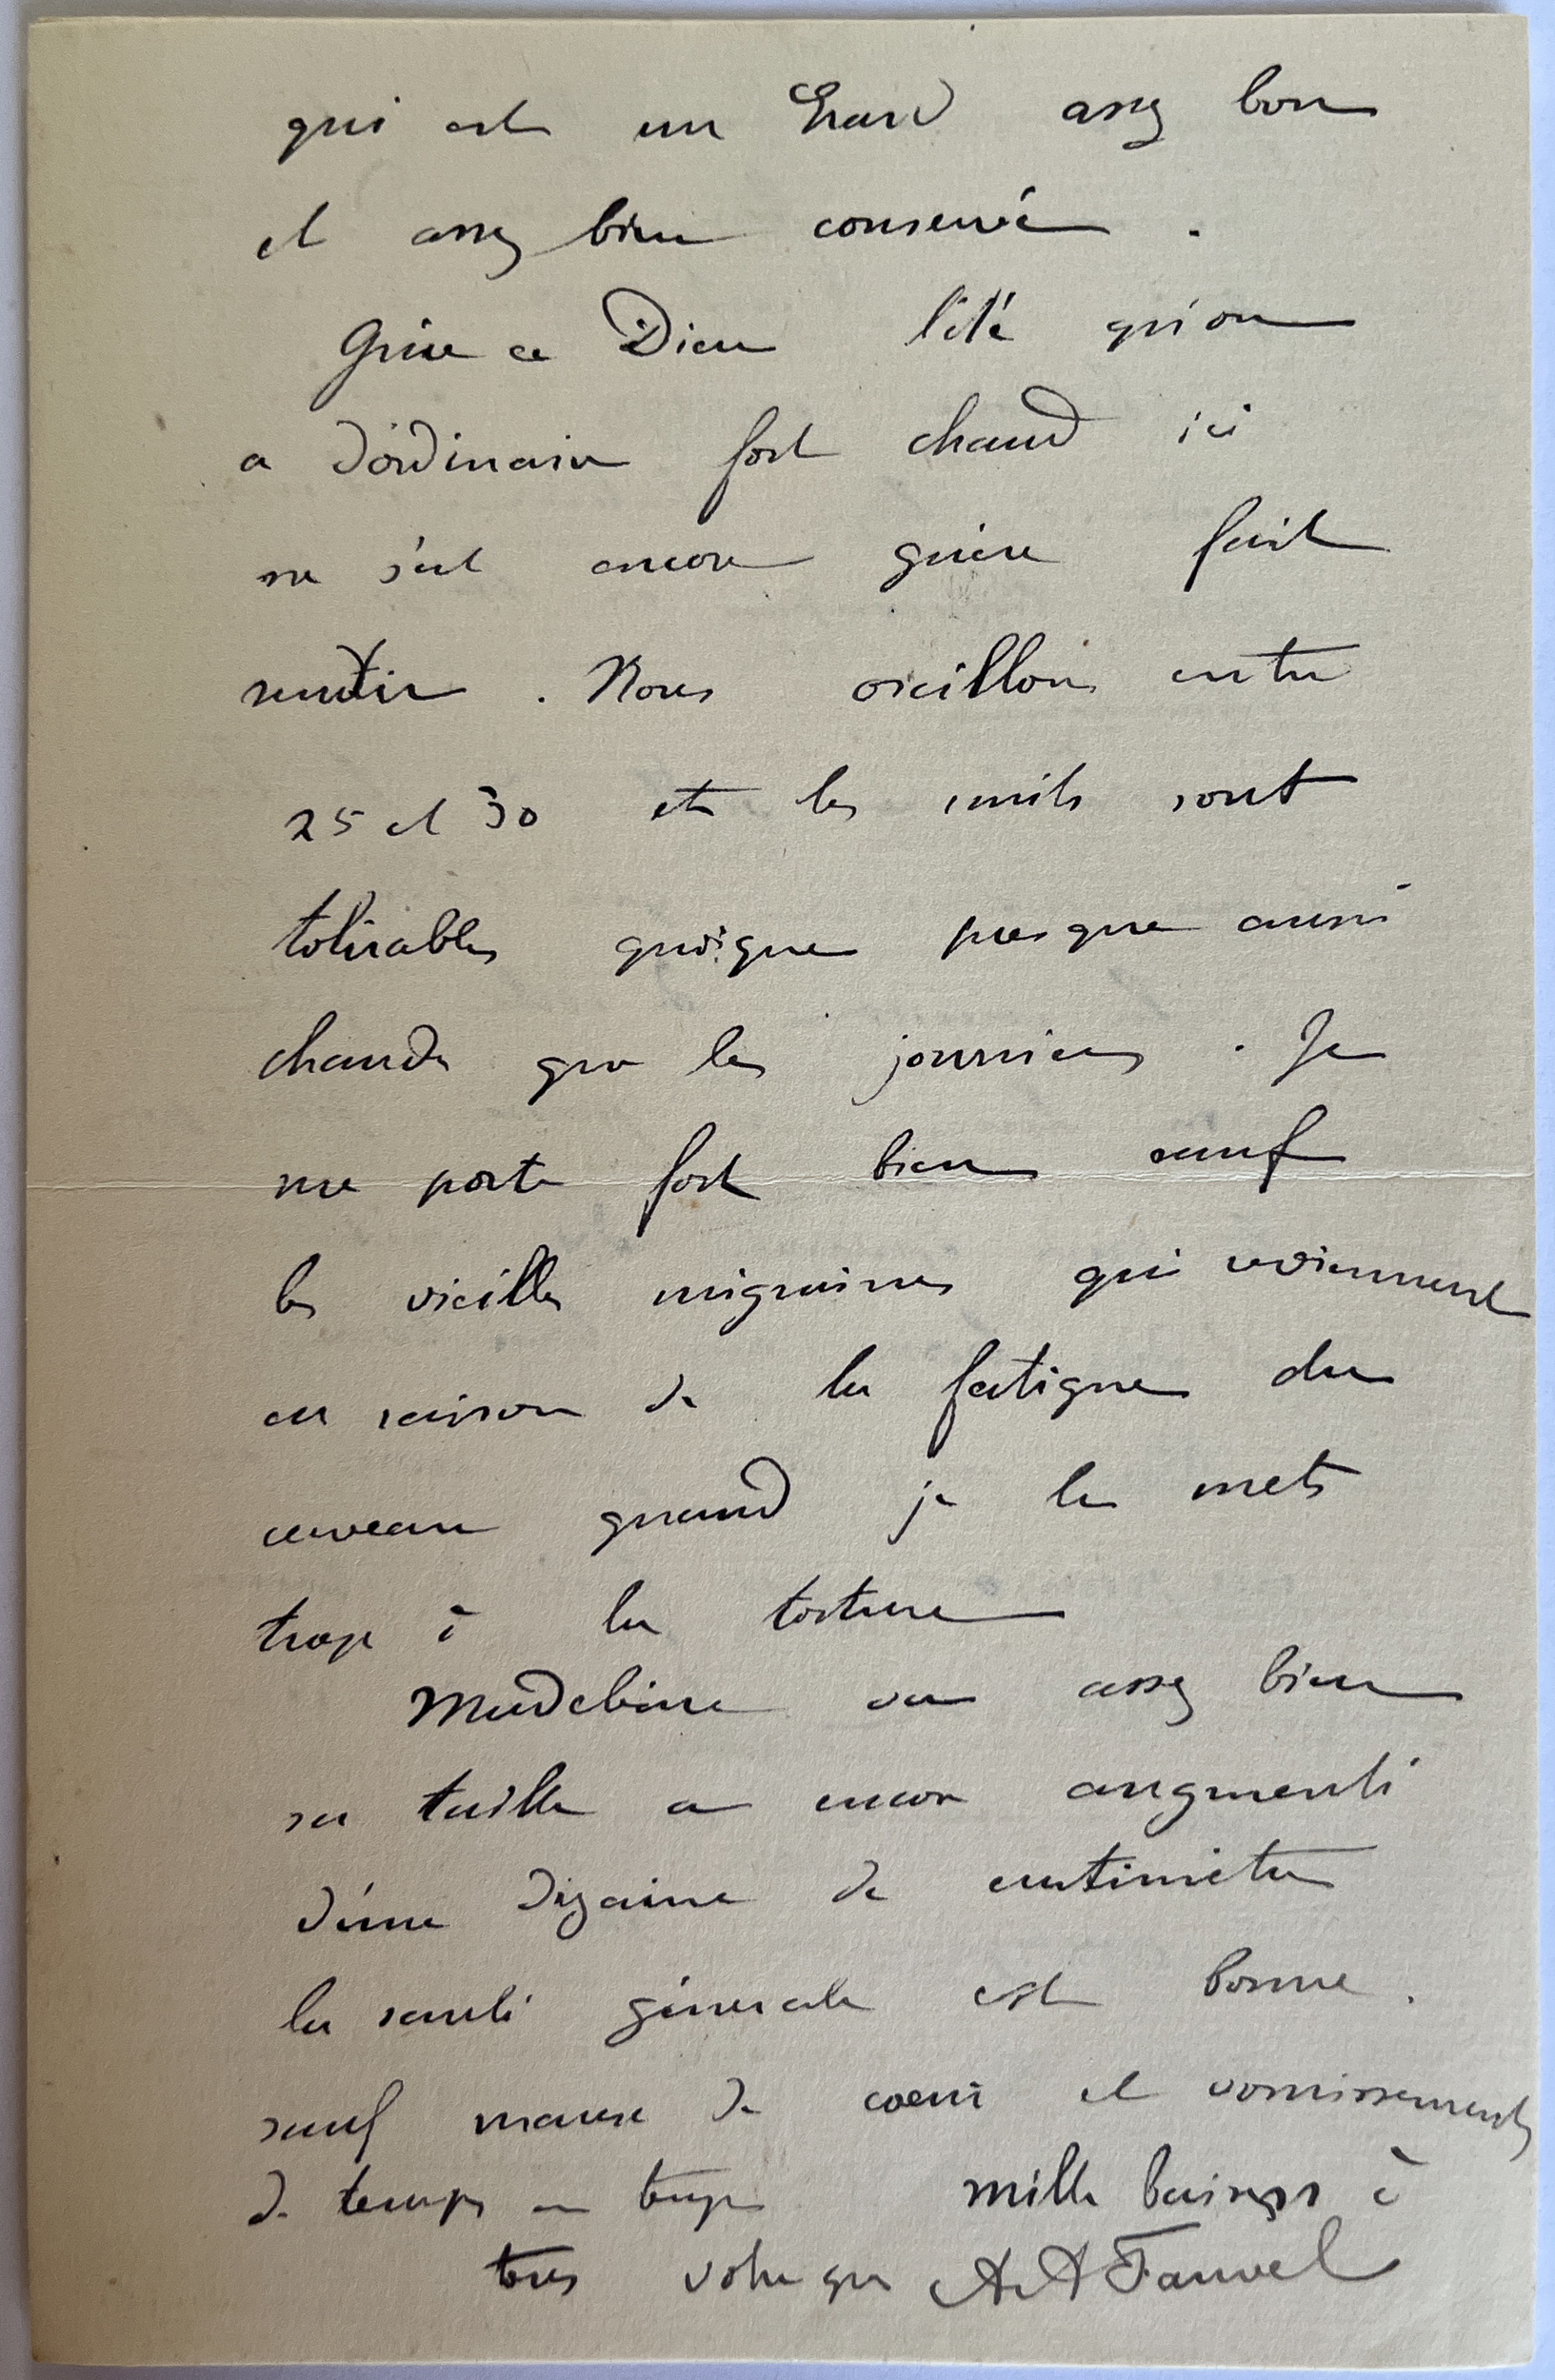 qui est un Erard assez bon
et assez bien conservé .
Grâce à Dieu l'été qu'on
a d'ordinaire fort chaud ici
ne s'est encore guère fait
sentir . Nous oscillons entre
25 et 30 et les nuits sont
tolérables quoique presque aussi
chaudes que les journées . Je
me porte fort bien sauf
les vieilles migraines qui reviennent
en raison de la fatigue du
cerveau quand je le mets
trop à la torture
Madeleine va assez bien
sa taille a encore augmenté
d'une dizaine de centimètres
la santé générale est bonne .
sauf maux de coeur et vomissements
de temps en temps mille baisers à
tous votre A A Fauvel